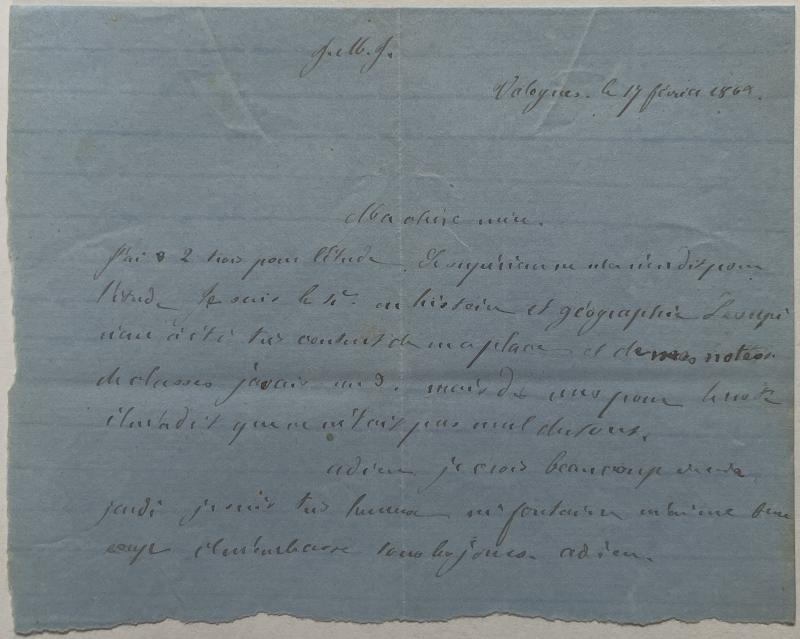 J. M. J.
Valognes. le 17 février 1869.
Ma chère mère.
J'ai 2 pour l'étude. Le supérieur ne m'a rien dit pour
l'étude Je suis le 5e. en histoire et géographie Le supé
rieur a été très content de ma place et de mes notes
de classes j'avais un 3. mais pour le reste
il m'a dit que ce n'était pas mal du tout.
adieu je crois beaucoup
jeudi je suis très heureux mr fontaine m'aime beau
coup il m'embrasse tous les jours. adieu.